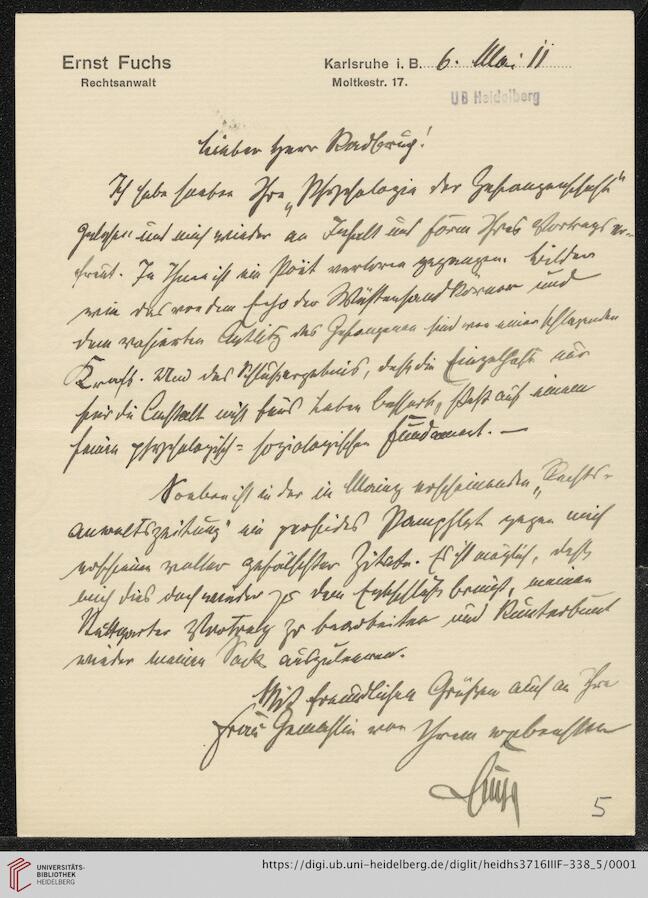 Ernst Fuchs
Rechtsanwalt
Karlsruhe i. B. 6. Mai 11
Moltkestr. 17.
UB Heidelberg
Lieber Herr Radbruch!
Ich habe soeben Ihre „Psychologie der Gefangenschaft“
gelesen und mich wieder an Inhalt und Form Ihres Vortrags er-
freut. In Ihnen ist ein Poët verloren gegangen. Bilder
wie das von dem Echo der Wüstensandkörner und
dem rasierten Antlitz des Gefangenen sind von einer schlagenden
Kraft. Und das Schlußergebnis, daß die Einzelhaft nur
für die Anstalt nicht fürs Leben bessert, steht auf einem
feinen psychologisch-soziologischen Fundament. —
Soeben ist in der in Mainz erscheinenden „Rechts-
anwaltszeitung“ ein perfides Pamphlet gegen mich
erschienen voller gefälschter Zitate. Es ist möglich, daß
mich dies doch wieder zu dem Entschluß bringt, meinen
Stuttgarter Vortrag zu bearbeiten und kunterbunt
wieder meinen Sack auszuleeren.
Mit freundlichen Grüßen auch an Ihre
Frau Gemahlin von Ihrem ergebensten
Fuchs
5
UNIVERSITÄTS-
BIBLIOTHEK
HEIDELBERG
https://digi.ub.uni-heidelberg.de/diglit/heidhs3716IIIF-338_5/0001